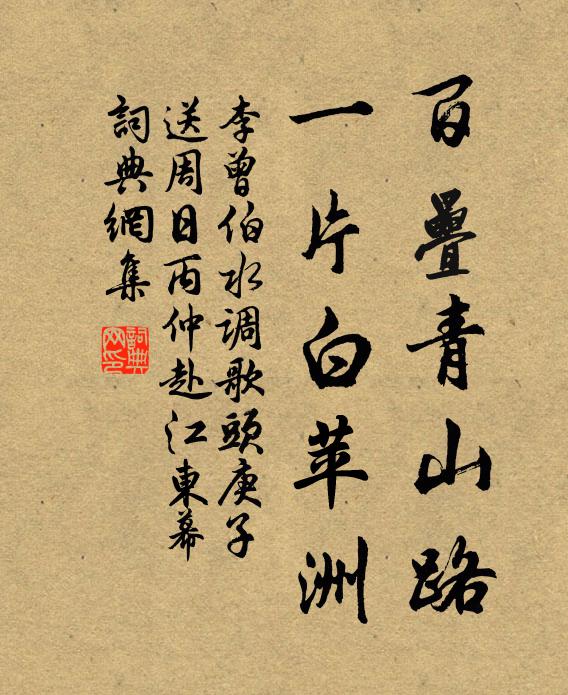 百疊青山路
一片白苹洲
李曾伯水调歌頭庚子
送周日丙仲赴江東幕
詞典網集
詞典网印